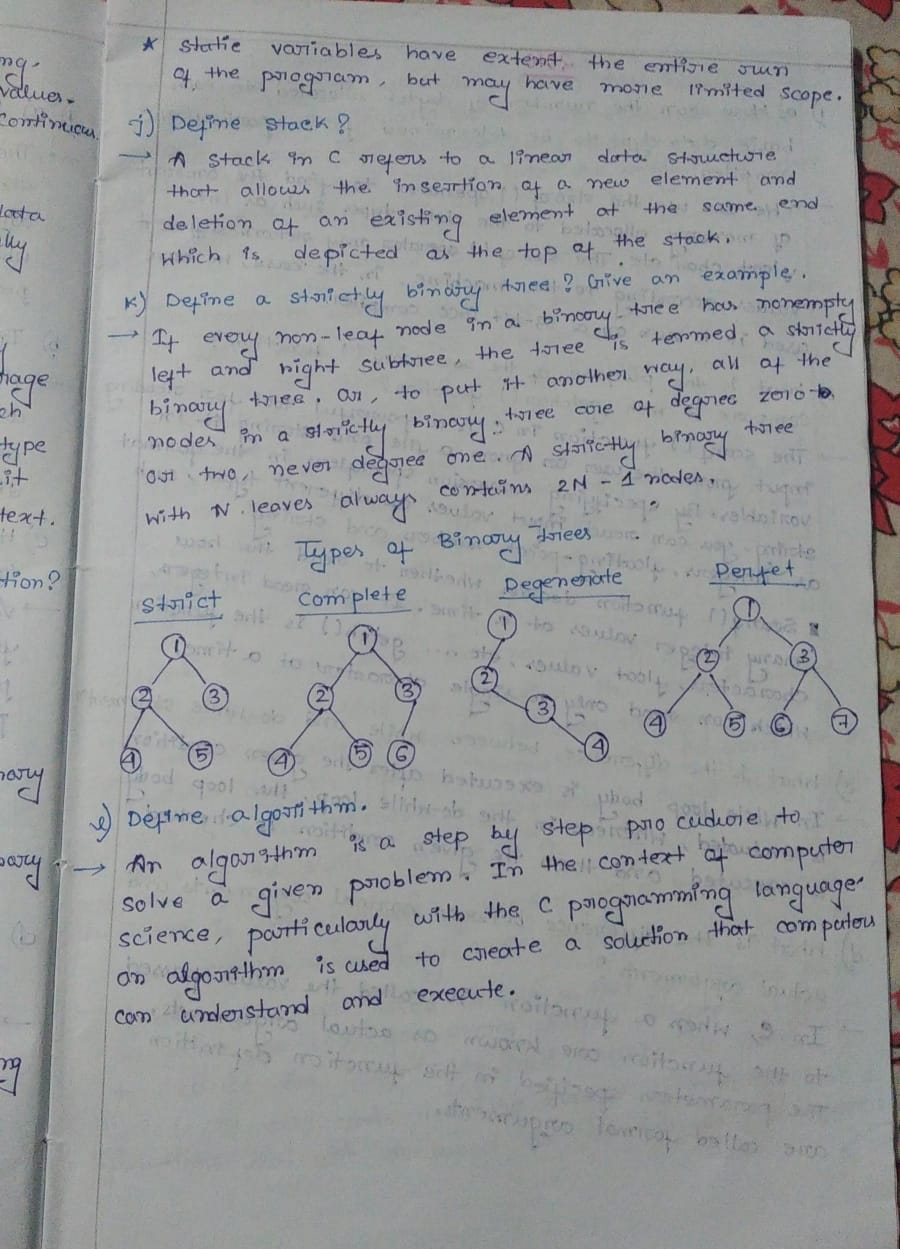 ng.
values.
continuous
data
lly
mage
ch
type
it
text.
tion?
nary
pary
ng
* Static variables have extent the entire run
of the program, but may have more limited scope.
j) Define stack?
→ A stack in C refers to a linear data structure
that allows the insertion of a new element and
deletion of an existing element at the same end
which is depicted as the top of the stack.
k) Define a strictly binary tree? Give an example.
→ If every non-leaf node in a binary tree has nonempty
left and right subtree, the tree is termed a strictly
binary tree. Or, to put it another way, all of the
nodes in a strictly binary tree are of degree zero
or two, never degree one. A strictly binary tree
with N leaves always contains 2N - 1 nodes.
Types of Binary trees
Strict Complete Degenerate Perfet
1 1 1 1
2 3 2 3 2 2 3
4 5 4 5 6 3 4 4 5 6 7
l) Define algorithm.
→ An algorithm is a step by step procudure to
solve a given problem. In the context of computer
science, particularly with the C programming language
an algorithm is used to create a solution that computers
can understand and execute.